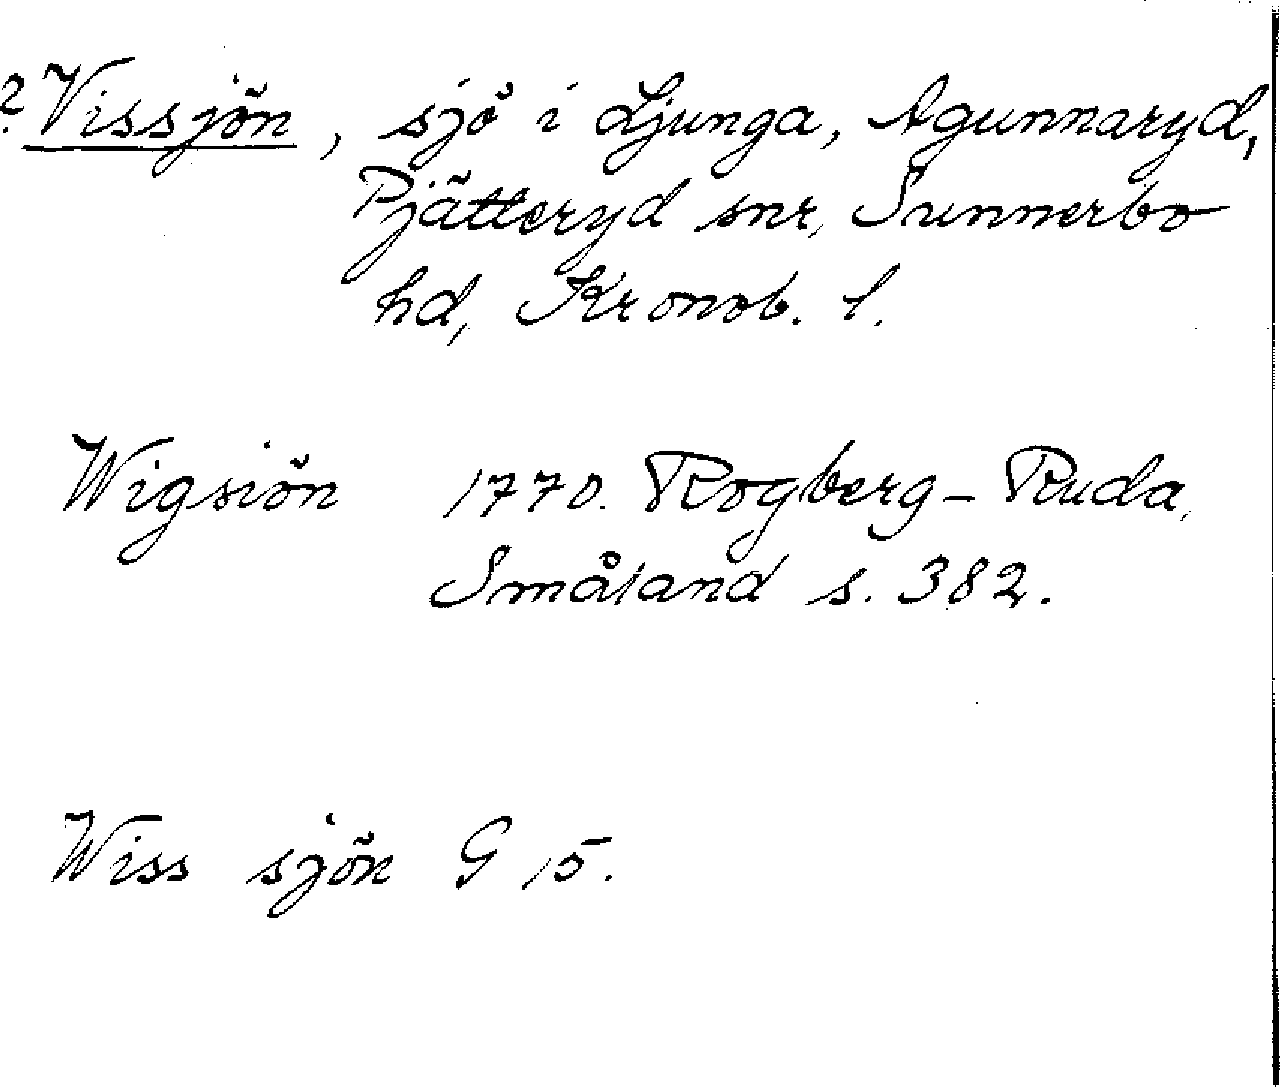 ? Vissjön, sjö i Ljunga, Agunnaryd,
Pjätteryd snr, Sunnerbo
hd, Kronob. l.
Wigsiön 1770. Rogberg - Ruda,
Småland s. 382.
Wiss sjön G 15.